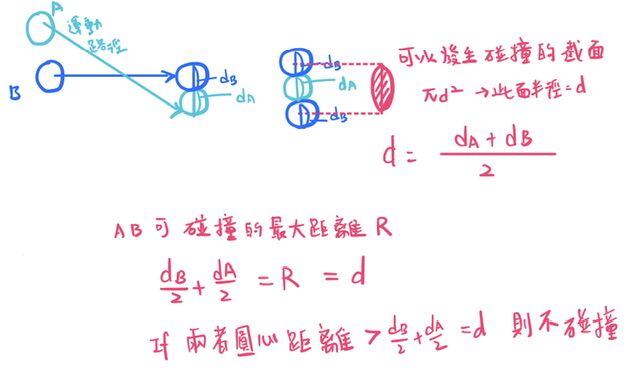 A 運動
路徑
B
dB
dA
dB
dA
dB
可以發生碰撞的截面
πd² → 此面半徑=d
d = (dA + dB) / 2
AB可碰撞的最大距離 R
dB/2 + dA/2 = R = d
If 兩者圓心距離 > dB/2 + dA/2 = d 則不碰撞